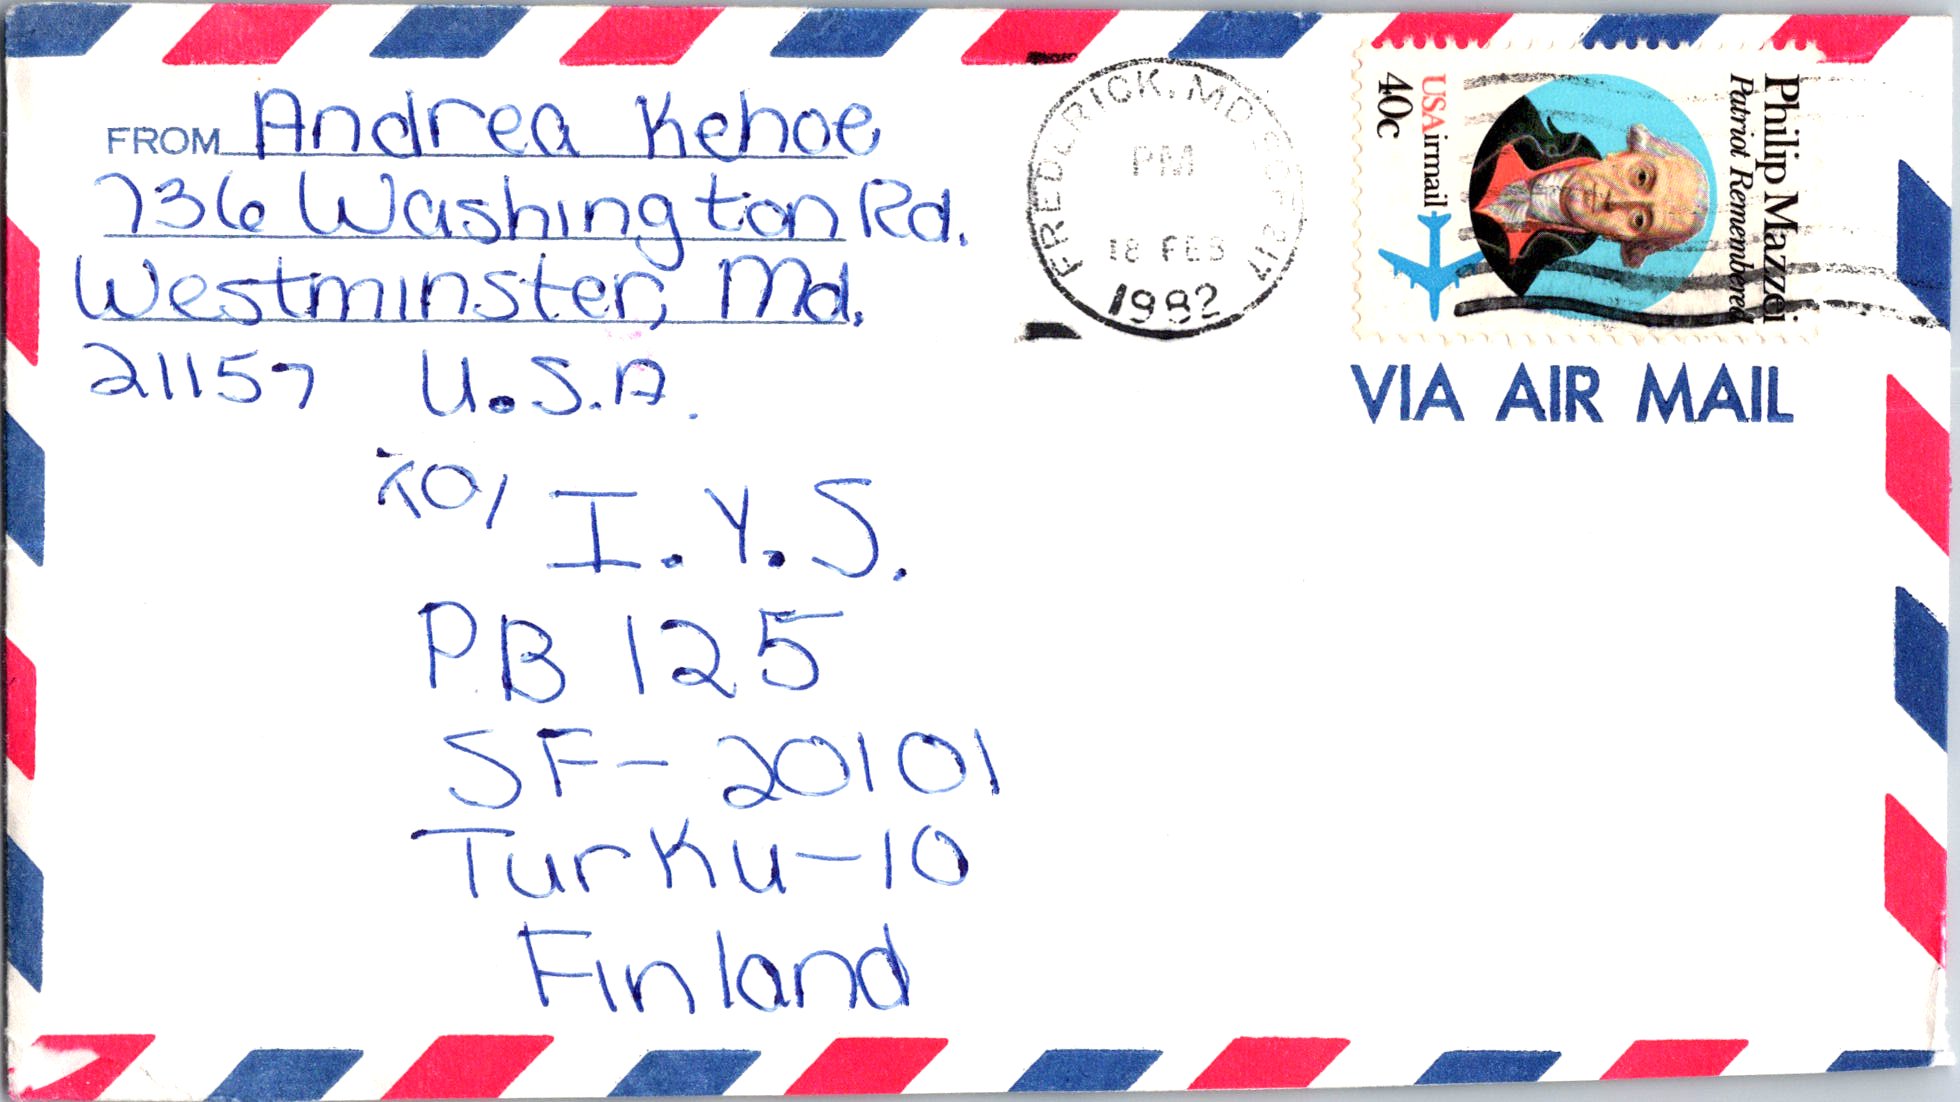 FROM Andrea Kehoe
736 Washington Rd.
Westminster, Md.
21157 U.S.A.
TO/ I.Y.S.
PB 125
SF-20101
Turku-10
Finland
FREDERICK, MD 217
PM
18 FEB
1982
Philip Mazzei
Patriot Remembered
USAirmail
40c
VIA AIR MAIL